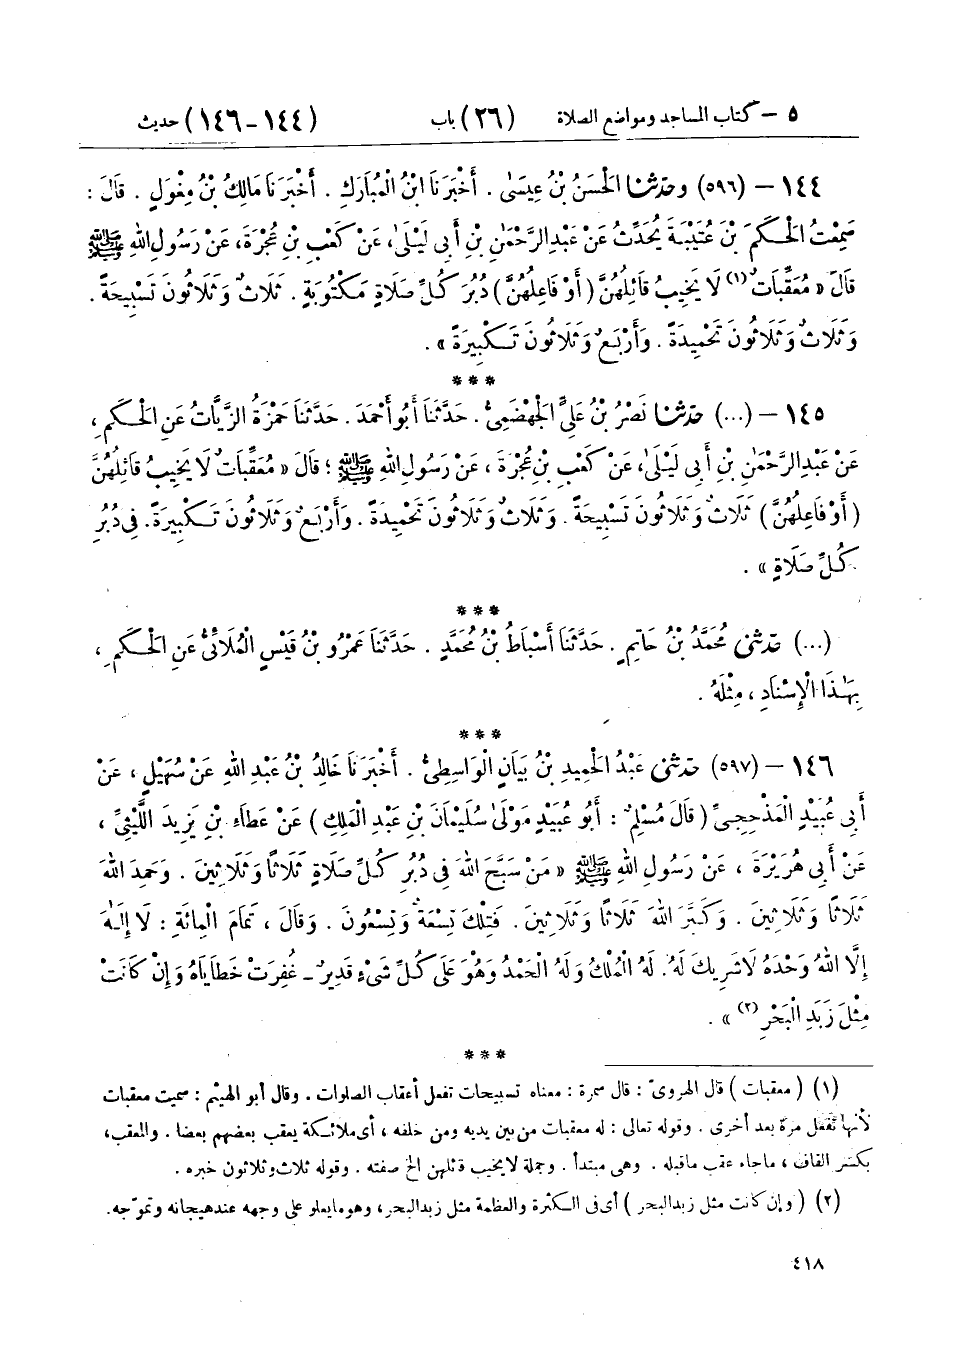 ٥ – كتاب المساجد ومواضع الصلاة (٢٦) باب (١٤٤-١٤٦) حديث
١٤٤ – (٥٩٦) وحَدَّثَنَا الْحَسَنُ بْنُ عِيسَىٰ . أَخْبَرَنَا ابْنُ الْمُبَارَكِ . أَخْبَرَنَا مَالِكُ بْنُ مِغْوَلٍ . قَالَ :
سَمِعْتُ الْحَكَمَ بْنَ عُتَيْبَةَ يُحَدِّثُ عَنْ عَبْدِ الرَّحْمَٰنِ بْنِ أَبِي لَيْلَىٰ، عَنْ كَعْبِ بْنِ عُجْرَةَ، عَنْ رَسُولِ اللهِ ﷺ
قَالَ « مُعَقِّبَاتٌ (١) لَا يَخِيبُ قَائِلُهُنَّ (أَوْ فَاعِلُهُنَّ) دُبُرَ كُلِّ صَلَاةٍ مَكْتُوبَةٍ . ثَلَاثٌ وَثَلَاثُونَ تَسْبِيحَةً .
وَثَلَاثٌ وَثَلَاثُونَ تَحْمِيدَةً . وَأَرْبَعٌ وَثَلَاثُونَ تَكْبِيرَةً » .
***
١٤٥ – (...) حَدَّثَنَا نَصْرُ بْنُ عَلِيٍّ الْجَهْضَمِيُّ . حَدَّثَنَا أَبُو أَحْمَدَ . حَدَّثَنَا حَمْزَةُ الزَّيَّاتُ عَنِ الْحَكَمِ ،
عَنْ عَبْدِ الرَّحْمَٰنِ بْنِ أَبِي لَيْلَىٰ، عَنْ كَعْبِ بْنِ عُجْرَةَ ، عَنْ رَسُولِ اللهِ ﷺ ؛ قَالَ « مُعَقِّبَاتٌ لَا يَخِيبُ قَائِلُهُنَّ
(أَوْ فَاعِلُهُنَّ) ثَلَاثٌ وَثَلَاثُونَ تَسْبِيحَةً . وَثَلَاثٌ وَثَلَاثُونَ تَحْمِيدَةً . وَأَرْبَعٌ وَثَلَاثُونَ تَكْبِيرَةً . فِي دُبُرِ
كُلِّ صَلَاةٍ » .
***
(...) حَدَّثَنِي مُحَمَّدُ بْنُ حَاتِمٍ . حَدَّثَنَا أَسْبَاطُ بْنُ مُحَمَّدٍ . حَدَّثَنَا عَمْرُو بْنُ قَيْسٍ الْمُلَائِيُّ عَنِ الْحَكَمِ ،
بِهَٰذَا الْإِسْنَادِ ، مِثْلَهُ .
***
١٤٦ – (٥٩٧) حَدَّثَنِي عَبْدُ الْحَمِيدِ بْنُ بَيَانٍ الْوَاسِطِيُّ . أَخْبَرَنَا خَالِدُ بْنُ عَبْدِ اللهِ عَنْ سُهَيْلٍ ، عَنْ
أَبِي عُبَيْدٍ الْمَذْحِجِيِّ (قَالَ مُسْلِمٌ : أَبُو عُبَيْدٍ مَوْلَىٰ سُلَيْمَانَ بْنِ عَبْدِ الْمَلِكِ) عَنْ عَطَاءِ بْنِ يَزِيدَ اللَّيْثِيِّ ،
عَنْ أَبِي هُرَيْرَةَ ، عَنْ رَسُولِ اللهِ ﷺ « مَنْ سَبَّحَ اللهَ فِي دُبُرِ كُلِّ صَلَاةٍ ثَلَاثًا وَثَلَاثِينَ . وَحَمِدَ اللهَ
ثَلَاثًا وَثَلَاثِينَ . وَكَبَّرَ اللهَ ثَلَاثًا وَثَلَاثِينَ . فَتِلْكَ تِسْعَةٌ وَتِسْعُونَ . وَقَالَ ، تَمَامَ الْمِائَةِ : لَا إِلَٰهَ
إِلَّا اللهُ وَحْدَهُ لَا شَرِيكَ لَهُ. لَهُ الْمُلْكُ وَلَهُ الْحَمْدُ وَهُوَ عَلَىٰ كُلِّ شَيْءٍ قَدِيرٌ - غُفِرَتْ خَطَايَاهُ وَإِنْ كَانَتْ
مِثْلَ زَبَدِ الْبَحْرِ (٢) » .
***
(١) ( معقبات ) قال الهرويّ : قال سمرة : معناه تسبيحات تفعل أعقاب الصلوات . وقال أبو الهيثم : سميت معقبات
لأنها تفعل مرة بعد أخرى . وقوله تعالى : له معقبات من بين يديه ومن خلفه ، أي ملائكة يعقب بعضهم بعضا . والمعقب،
بكسر القاف ، ماجاء عقب ماقبله . وهى مبتدأ . وجملة لا يخيب قائلهن الخ صفته . وقوله ثلاث وثلاثون خبره .
(٢) ( وإن كانت مثل زبد البحر ) أي في الكثرة والعظمة مثل زبد البحر ، وهو مايعلو على وجهه عند هيجانه وتموّجه .
٤١٨